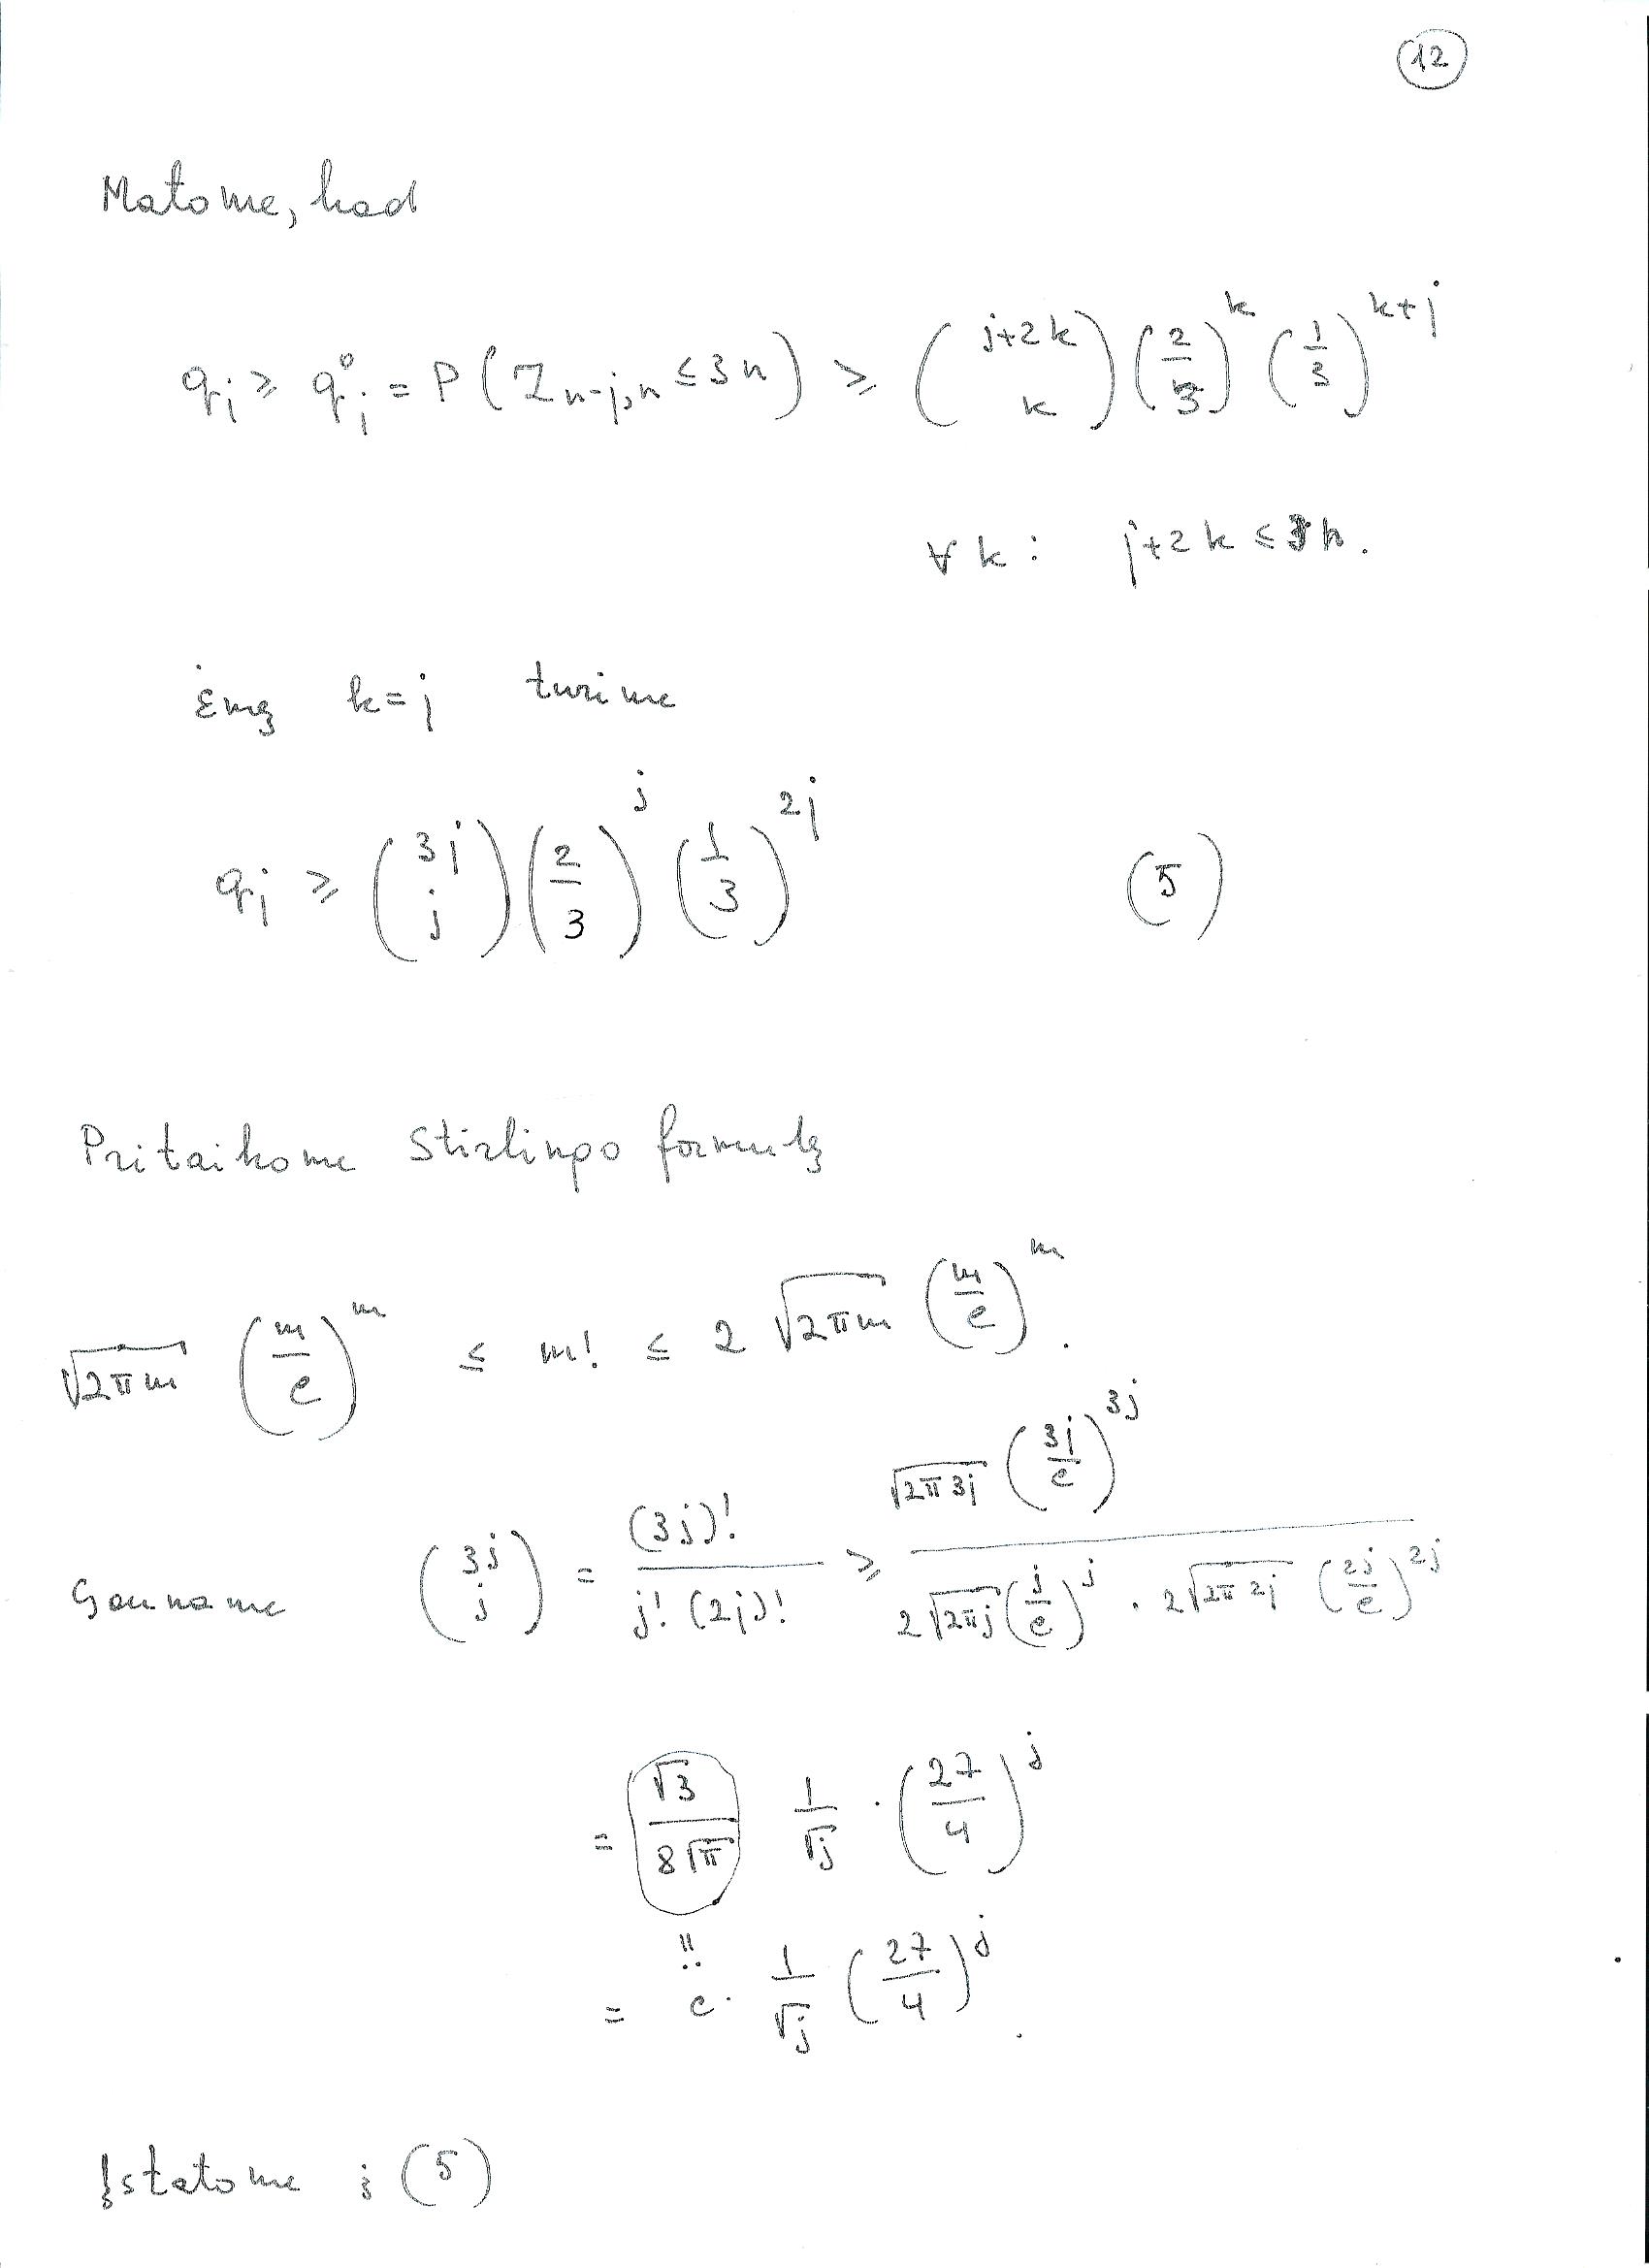 12
Matome, kad
q_j ≥ q_j^0 = P(Z_{n-j,n} ≤ 3n) ≥ \binom{j+2k}{k} (2/3)^k (1/3)^{k+j}
∀ k : j+2k ≤ 3n.
Ėmę k=j turime
q_j ≥ \binom{3j}{j} (2/3)^j (1/3)^{2j} (5)
Pritaikome Stirlingo formulę
√(2πm) (m/e)^m ≤ m! ≤ 2 √(2πm) (m/e)^m.
Gauname \binom{3j}{j} = (3j)! / (j! (2j)!) ≥ (√(2π3j) (3j/e)^{3j}) / (2√(2πj) (j/e)^j · 2√(2π2j) (2j/e)^{2j})
= √3/(8√π) 1/√j · (27/4)^j
= c · 1/√j (27/4)^j.
Įstatome į (5)